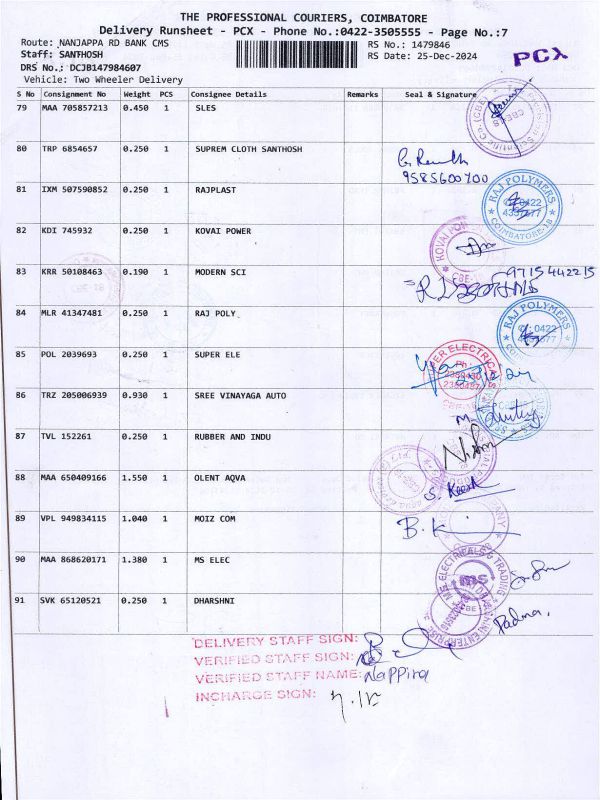 THE PROFESSIONAL COURIERS, COIMBATORE
Delivery Runsheet - PCX - Phone No.:0422-3505555 - Page No.:7
Route: NANJAPPA RD BANK CMS RS No.: 1479846
Staff: SANTHOSH RS Date: 25-Dec-2024
DRS No.: DCJB147984607
Vehicle: Two Wheeler Delivery
PCX
S No Consignment No Weight PCS Consignee Details Remarks Seal & Signature
79 MAA 705857213 0.450 1 SLES
80 TRP 6854657 0.250 1 SUPREM CLOTH SANTHOSH
9585600700
81 IXM 507590852 0.250 1 RAJPLAST
RAJ POLYMERS
COIMBATORE-18
82 KDI 745932 0.250 1 KOVAI POWER
83 KRR 50108463 0.190 1 MODERN SCI
9715442215
84 MLR 41347481 0.250 1 RAJ POLY
RAJ POLYMERS
85 POL 2039693 0.250 1 SUPER ELE
86 TRZ 205006939 0.930 1 SREE VINAYAGA AUTO
87 TVL 152261 0.250 1 RUBBER AND INDU
88 MAA 650409166 1.550 1 OLENT AQVA
89 VPL 949834115 1.040 1 MOIZ COM
B.K
90 MAA 868620171 1.380 1 MS ELEC
ms
91 SVK 65120521 0.250 1 DHARSHNI
Padma.
DELIVERY STAFF SIGN:
VERIFIED STAFF SIGN:
VERIFIED STAFF NAME: Nappira
INCHARGE SIGN: